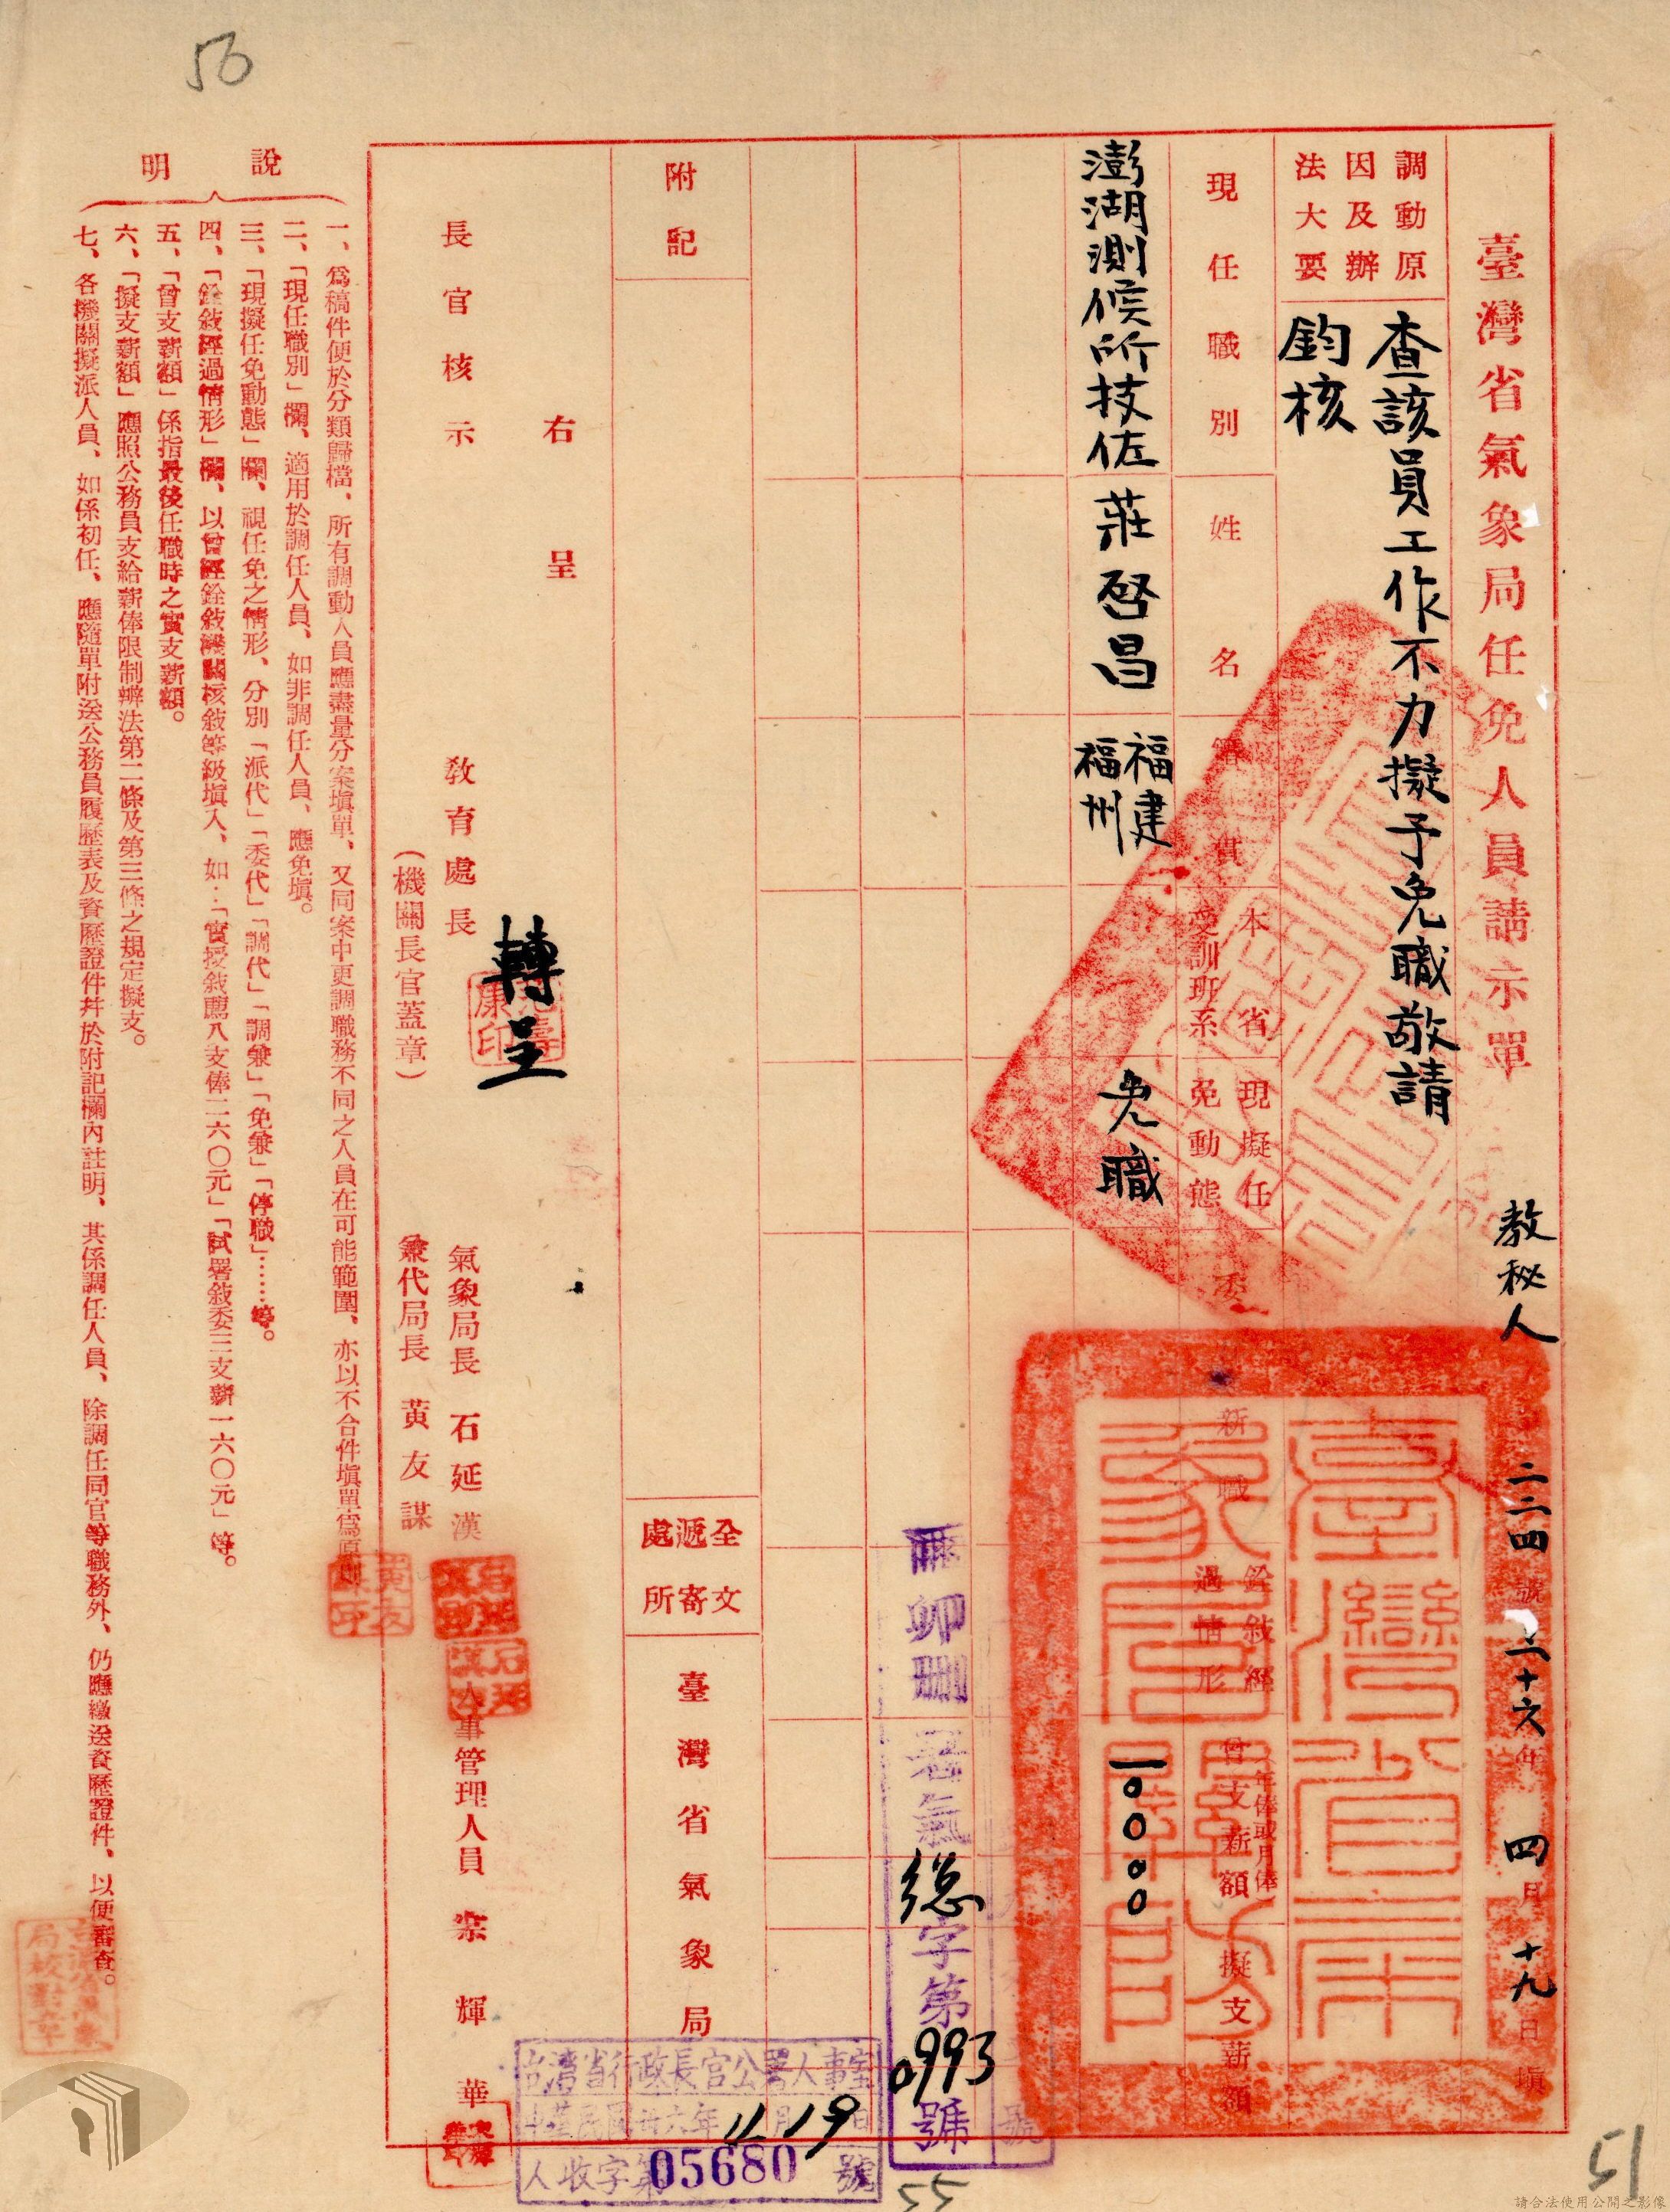 56
臺灣省氣象局任免人員請示單
教秘人
二三四號 三十六年 四月 十九日填
調動原因及辦法大要
查該員工作不力擬予免職敬請
鈞核
現任職別
姓名
籍貫
本省受訓班系
現擬任免動態
新職
銓敍經過情形
曾支薪額
(年俸或月俸
擬支薪額
澎湖測候所技佐
莊啓昌
福建
福州
免職
一〇〇〇〇
臺灣省
象局
氣
總
字第
0993
號
附記
全文遞寄處所
臺灣省氣象局
右呈
轉呈
長官核示
教育處長
(機關長官蓋章)
康印
氣象局長 石延漢
兼代局長 黃友謀
人事管理人員 宗輝華
台灣省行政長官公署人事室
中華民國卅六年 月19日
人收字第05680號
說明
一、爲稿件便於分類歸檔、所有調動人員應盡量分案塡單、又同案中更調職務不同之人員在可能範圍、亦以不合件塡單爲原則
二、「現任職別」欄、適用於調任人員、如非調任人員、應免塡。
三、「現擬任免動態」欄、視任免之情形、分別「派代」「委代」「調代」「調兼」「免兼」「停職」……等。
四、「銓敍經過情形」欄、以曾經銓敍機關核敍等級塡入、如：「實授敍薦八支俸二六〇元」「試署敍委三支薪一六〇元」等。
五、「曾支薪額」係指最後任職時之實支薪額。
六、「擬支薪額」應照公務員支給薪俸限制辦法第二條及第三條之規定擬支。
七、各機關擬派人員、如係初任、應隨單附送公務員履歷表及資歷證件幷於附記欄內註明、其係調任人員、除調任同官等職務外、仍應繳送資歷證件、以便審查。
55
51
請合法使用公開之影像